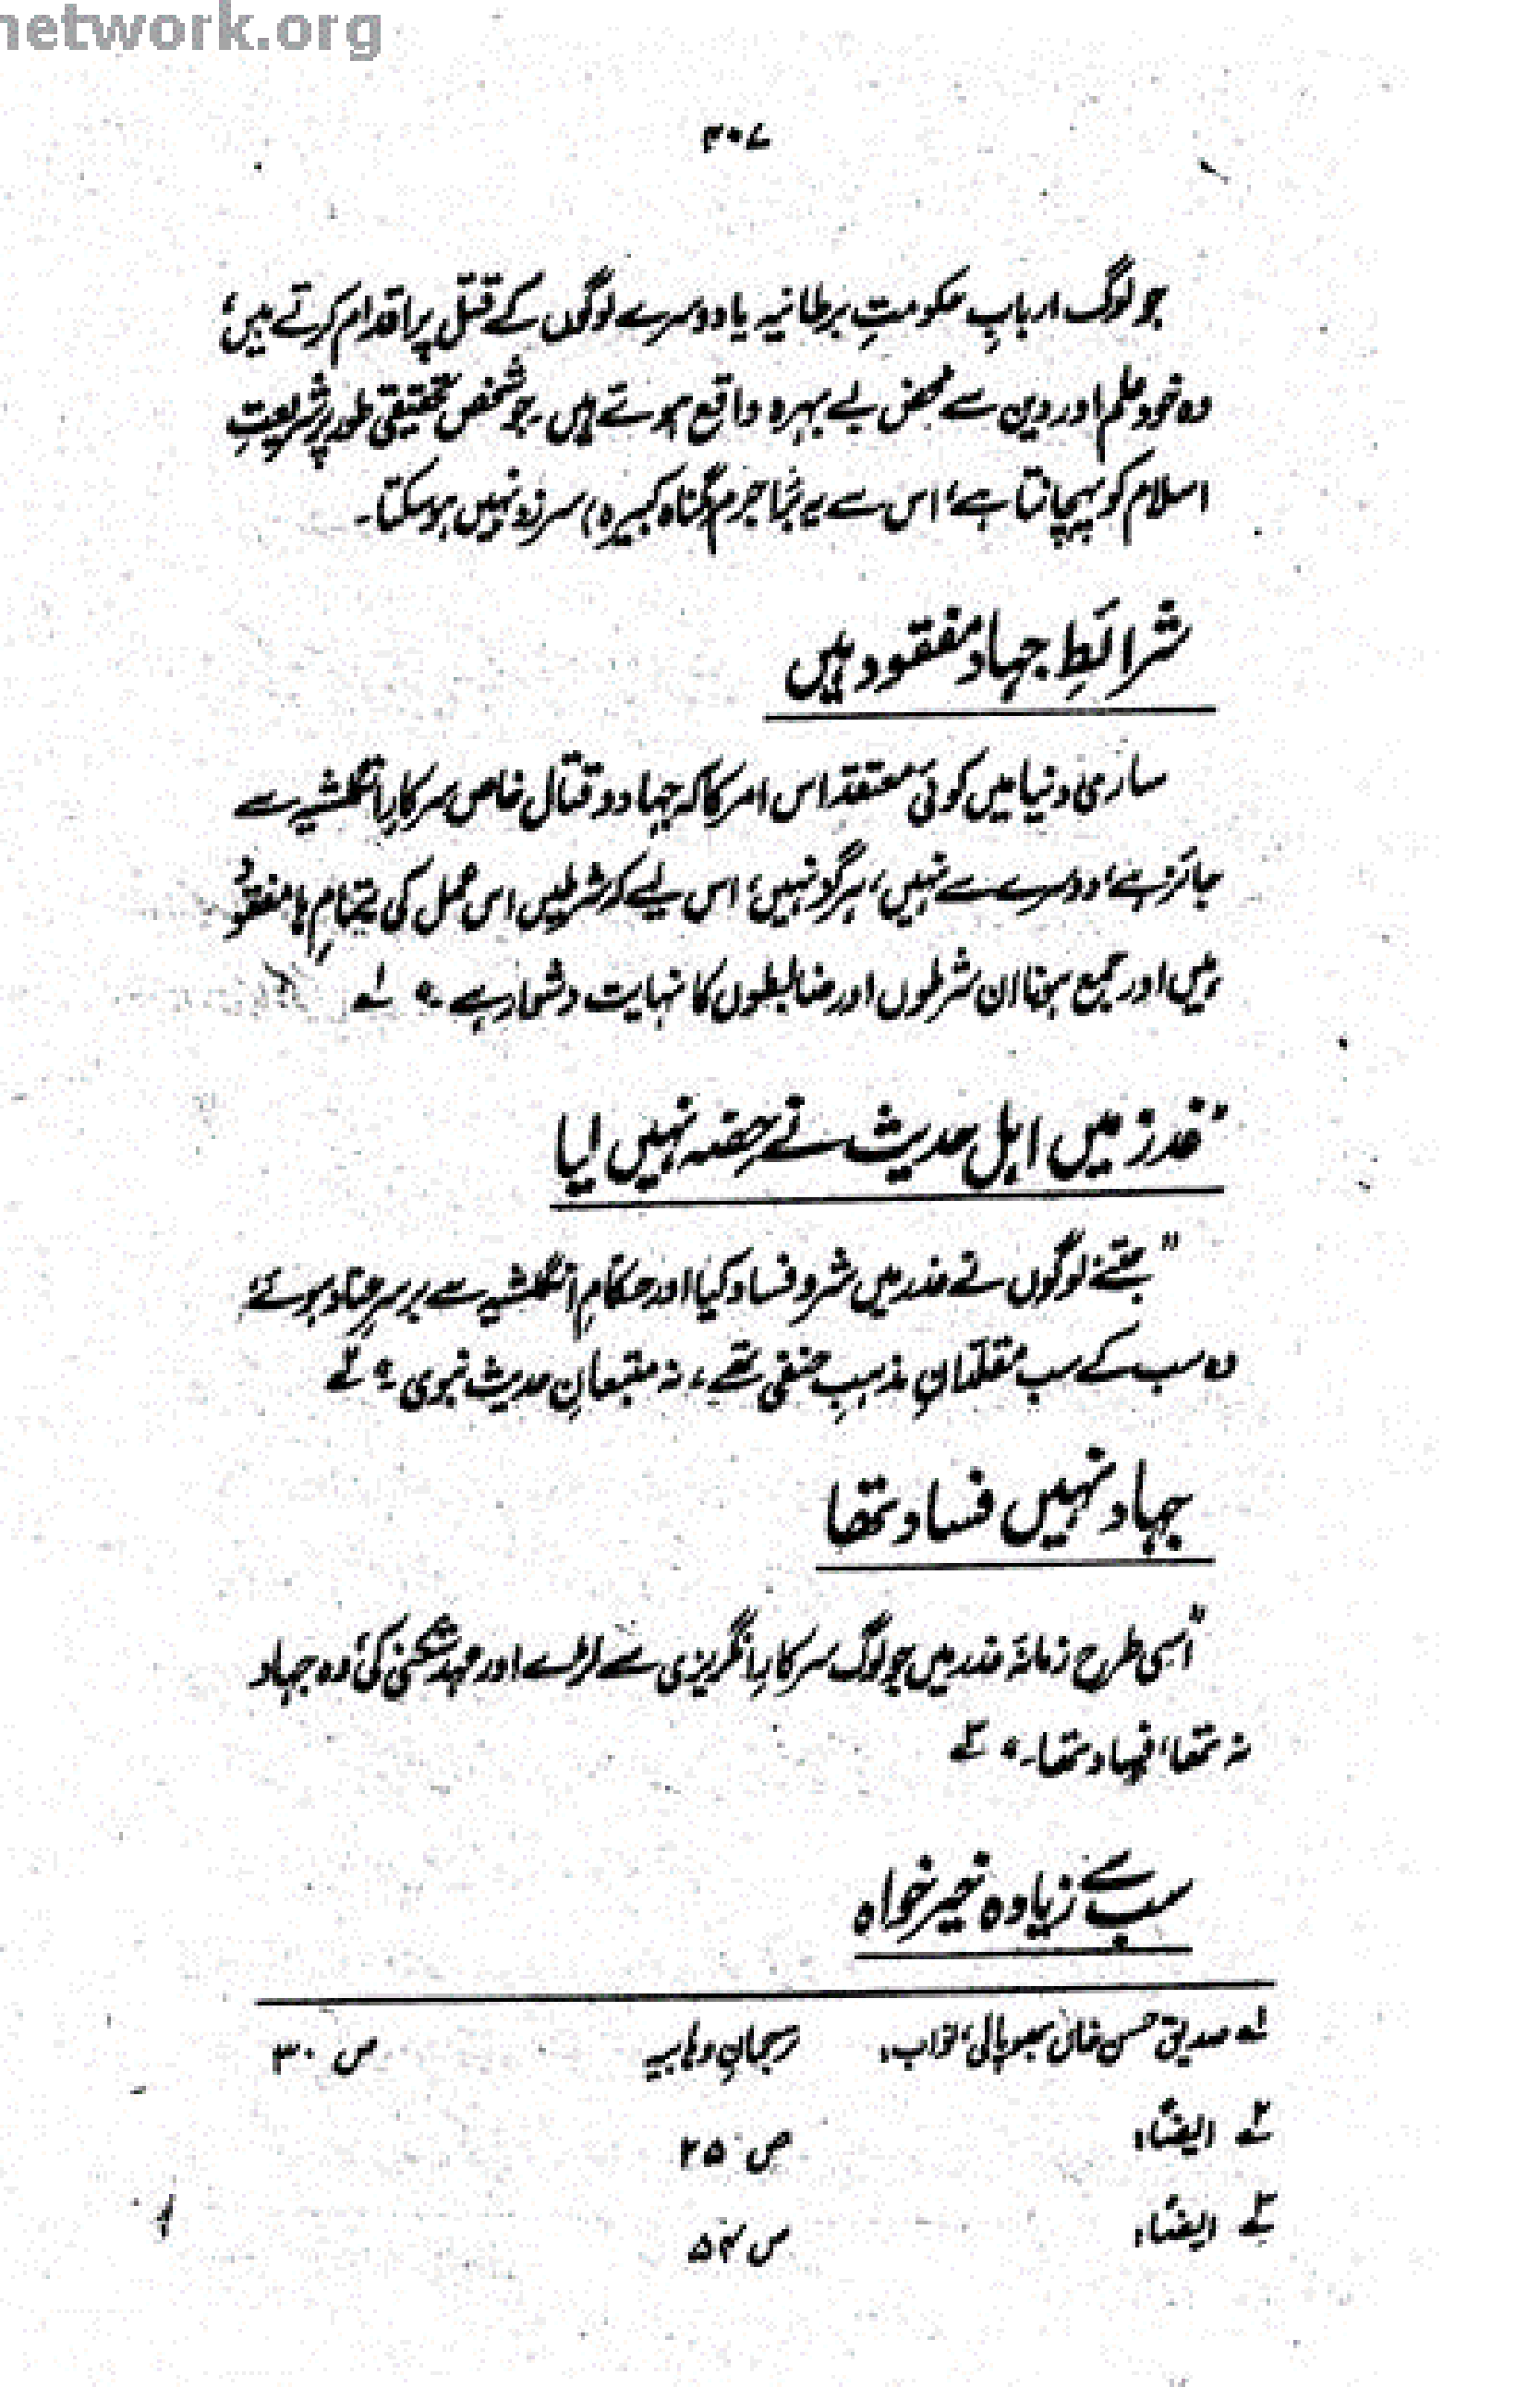 network.org
۳۰۷
جو لوگ اربابِ حکومتِ برطانیہ یا دوسرے لوگوں کے قتل پر اقدام کرتے ہیں،
وہ خود علم اور دین سے محض بے بہرہ واقع ہوتے ہیں۔ جو شخص تحقیقی طور پر شریعتِ
اسلام کو پہچانتا ہے، اس سے یہ بڑا جرم (گناہ کبیرہ) سرزد نہیں ہو سکتا۔
شرائطِ جہاد مفقود ہیں
ساری دنیا میں کوئی معتقد اس امر کا کہ جہاد و قتال خاص سرکارِ انگلشیہ سے
جائز ہے، دوسرے سے نہیں، ہرگز نہیں، اس لیے کہ شرطیں اس عمل کی بتمامہا مفقود
ہیں اور جمع ہونا ان شرطوں اور ضابطوں کا نہایت دشوار ہے۔" لہ
"غدر" میں اہل حدیث نے حصہ نہیں لیا
"جتنے لوگوں نے غدر میں شر و فساد کیا اور حکامِ انگلشیہ سے برسرِ عناد ہوئے،
وہ سب کے سب مقلدانِ مذہبِ حنفی تھے، نہ متبعانِ حدیث نبوی۔" ۲ہ
جہاد نہیں فساد تھا
"اسی طرح زمانۂ غدر میں جو لوگ سرکارِ انگریزی سے لڑے اور عہد شکنی کی، وہ جہاد
نہ تھا، فساد تھا۔" ۳ہ
سب سے زیادہ خیر خواہ
لہ صدیق حسن خاں بھوپالی، نواب: ترجمانِ وہابیہ ص ۳۰
۲ہ ایضاً: ص ۲۵
۳ہ ایضاً: ص ۵۴